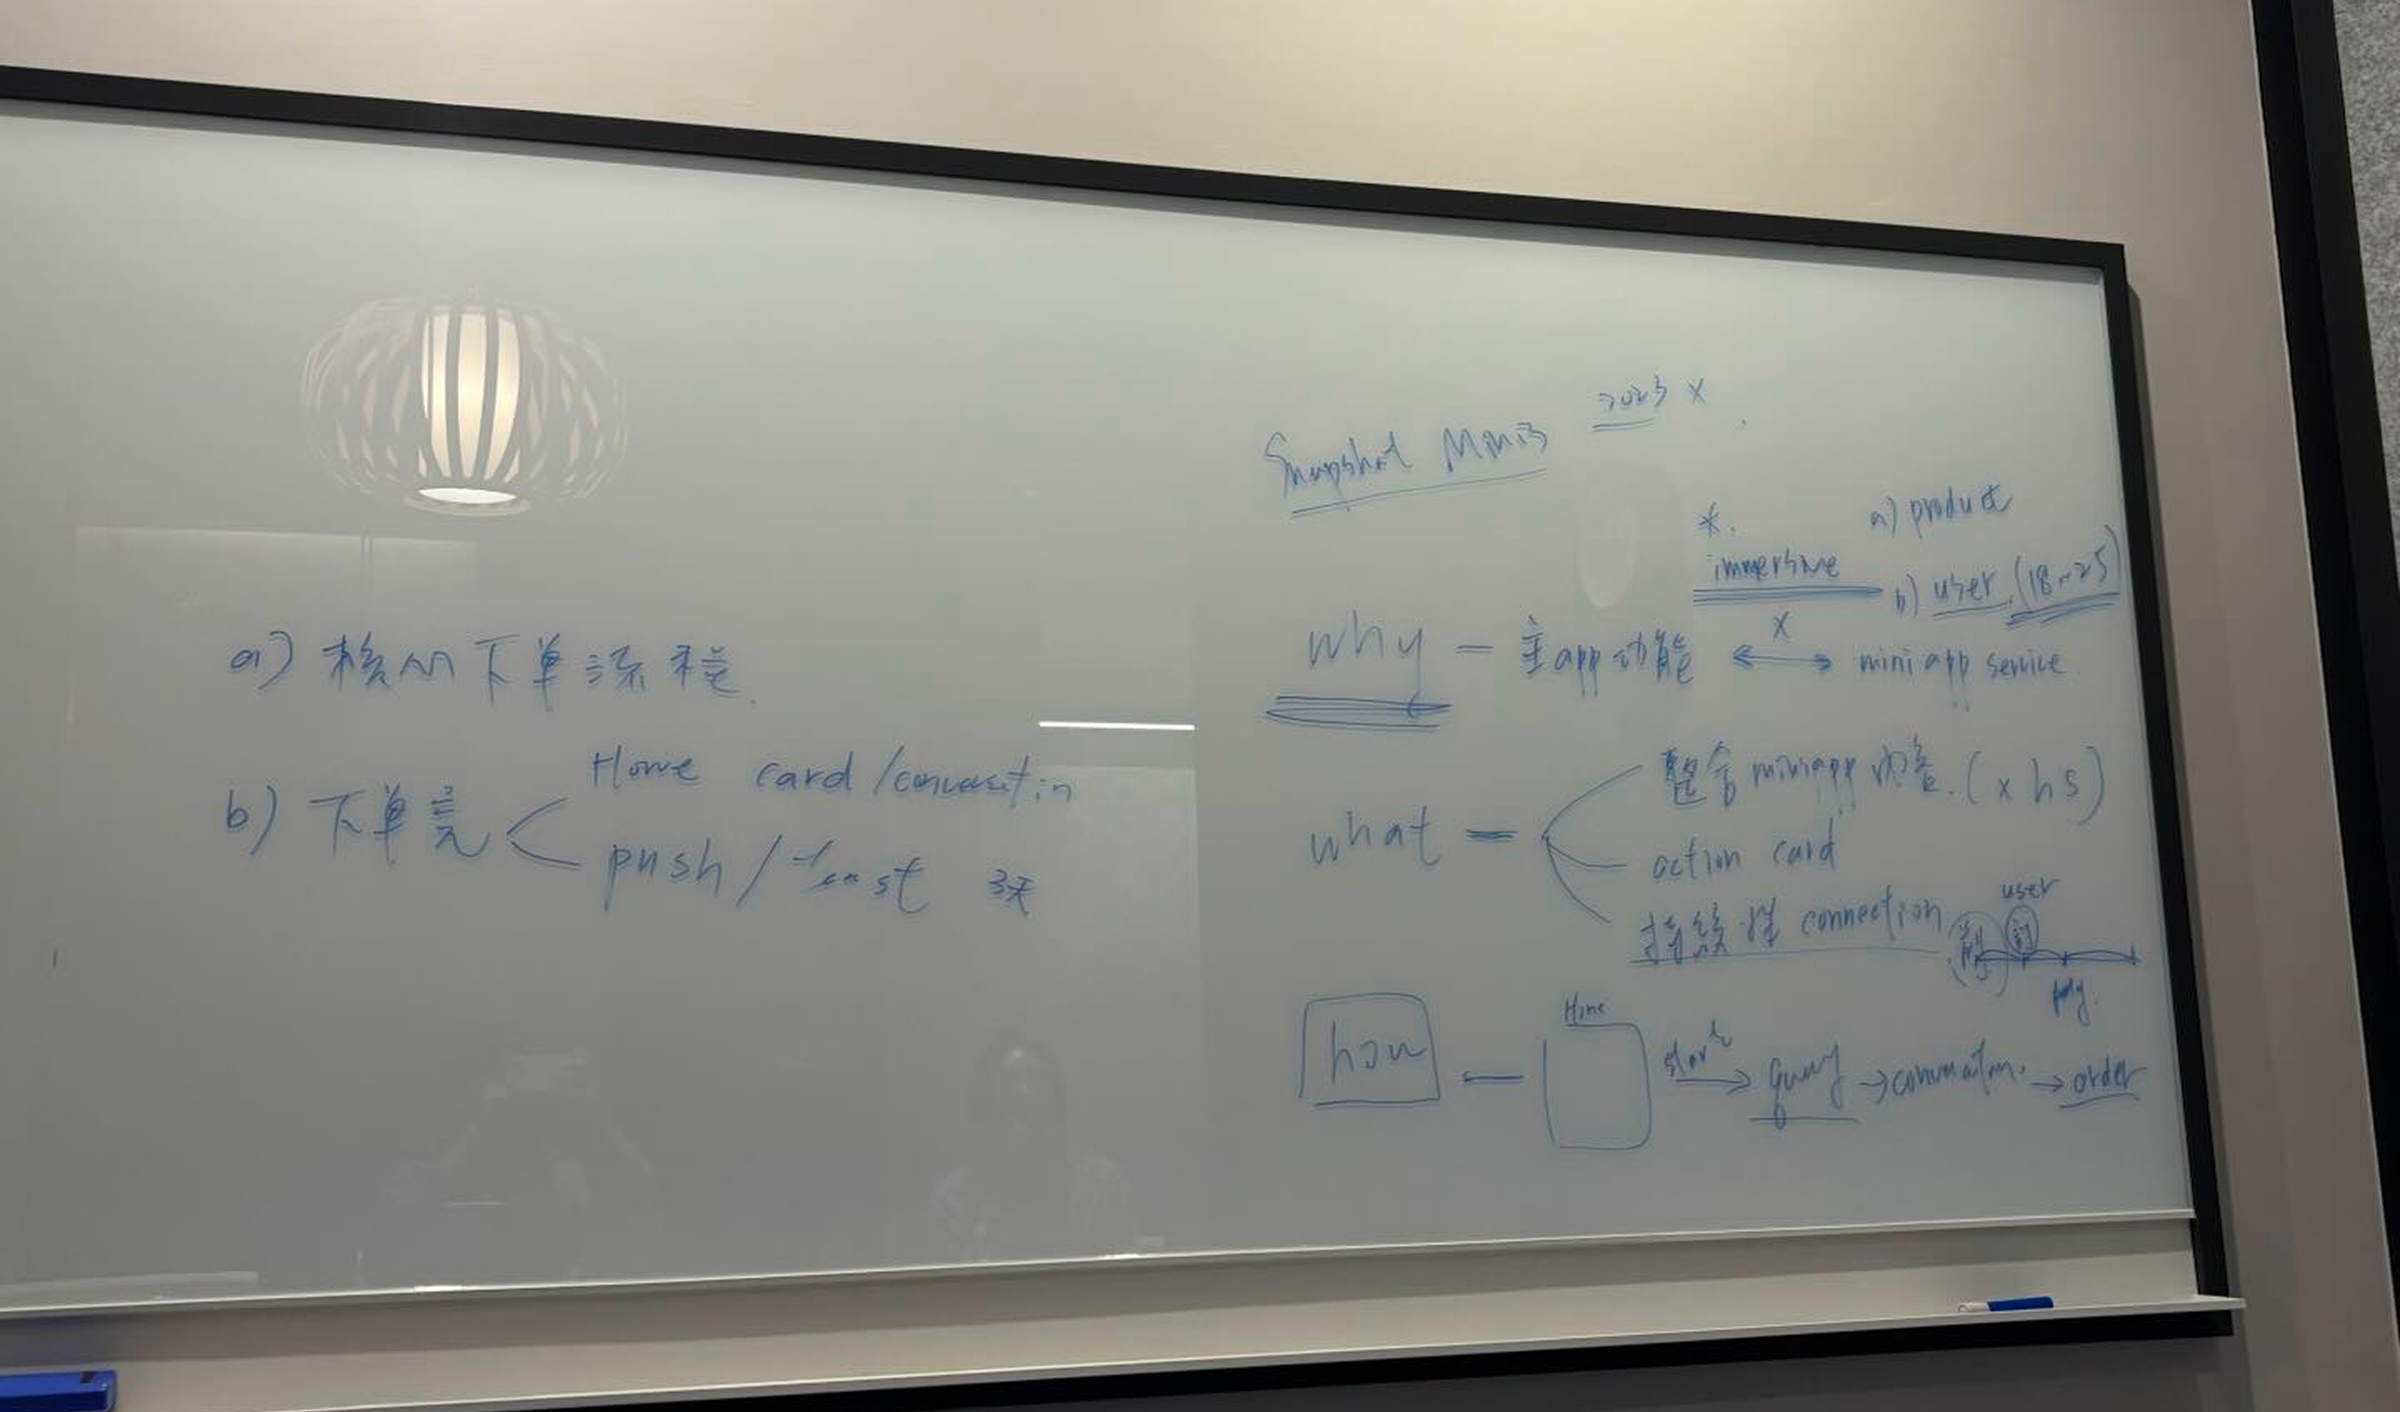 a) 核心下单流程
b) 下单完
Home card / conversatin
push / 3天
Snapshot Minis 2023 x
*. immersive
a) product
b) user (18~25)
why — 主app功能 x mini app service
what = 整合 miniapp 内容. (xhs)
action card
持续性 connection
user
how — Home → query → → order